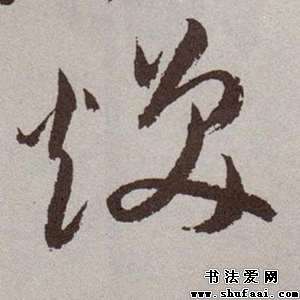 焕
书法爱网
www.shufaai.com